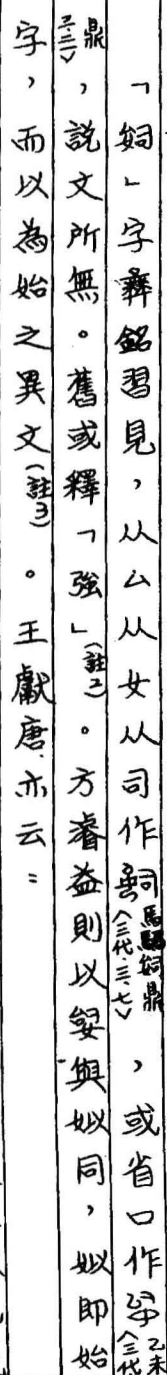 「㚸」字彝銘習見，从厶从女从司作（三代.三.七），或省口作乙未（三代
鼎三.三），說文所無。舊或釋「強」（註2）。方濬益則以㛐與姒同，姒即始
字，而以為始之異文（註3）。王獻唐亦云：